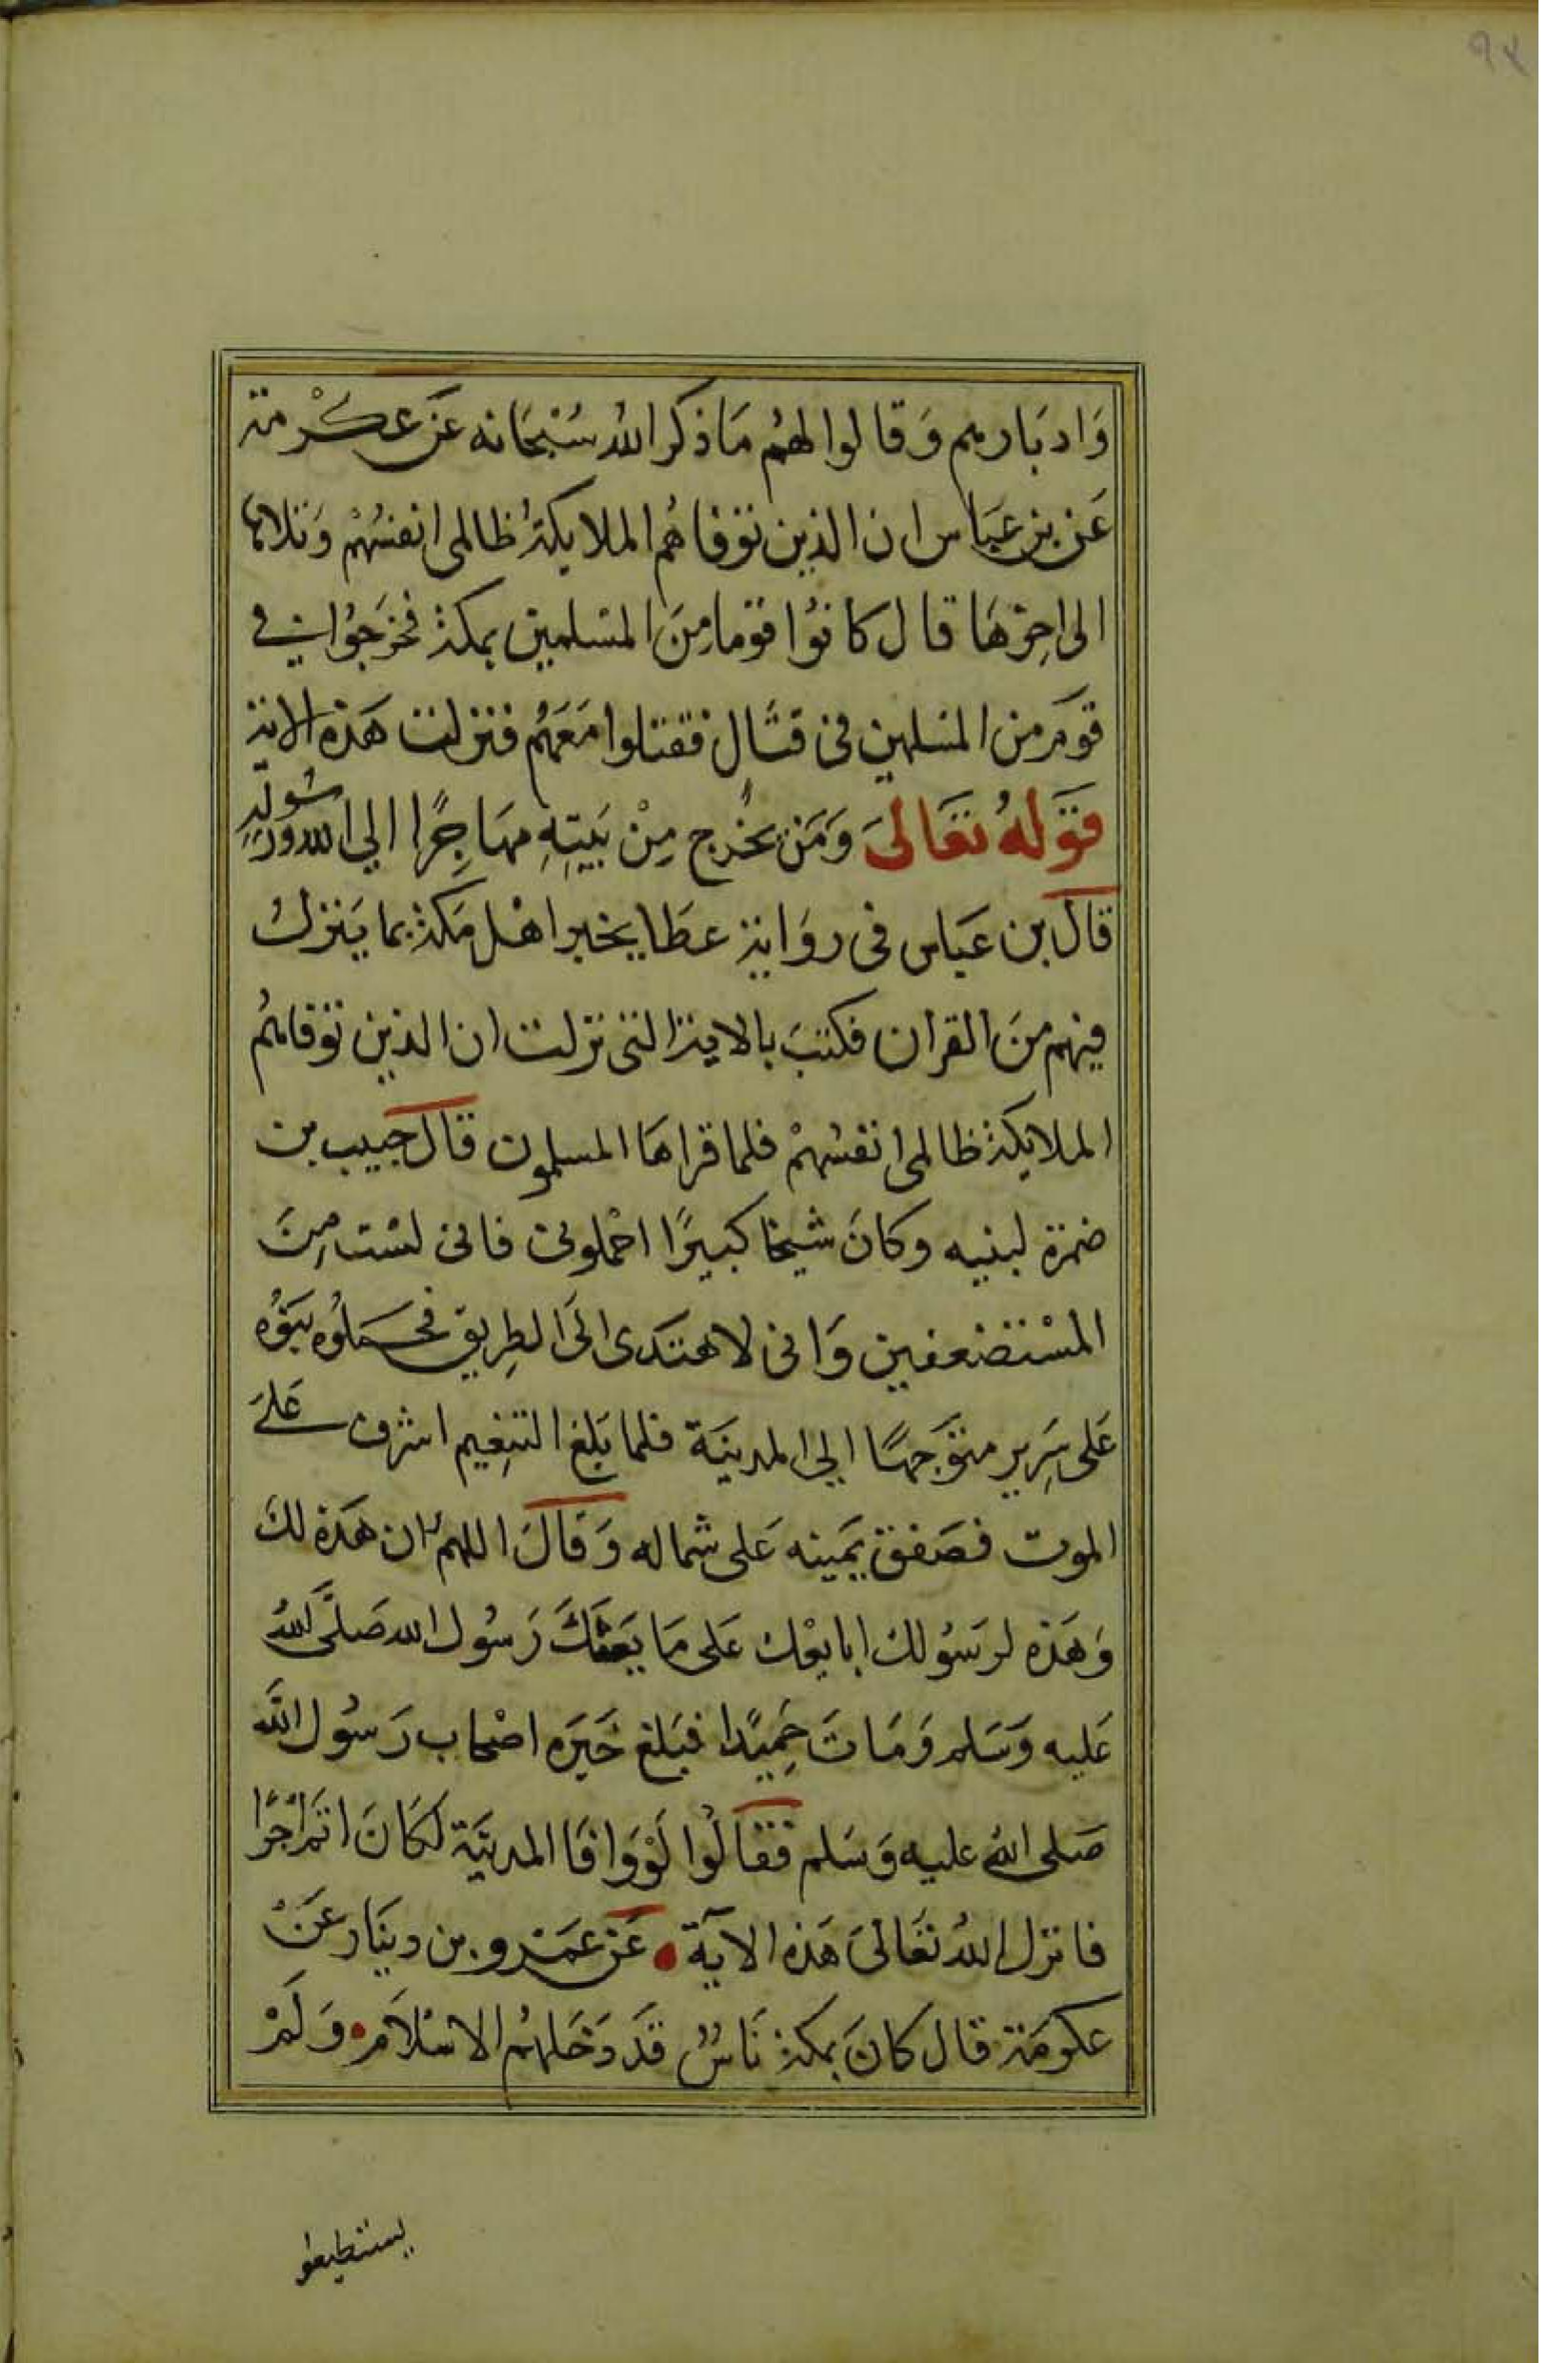 ٩٤
وَادبَارهم وَقالوا لهُم مَا ذكر اللهُ سُبْحَانه عَن عكْرمة
عَن بن عبَاس ان الذين توفاهُم الملايكةُ ظالمى انفسُهمْ وَتلاها
الى اخِرهَا قال كانوُا قومًا مِنَ المسْلمين بمكة فخرَجُوا في
قوَم من المسَلمين فى قتَال فقتلوا مَعَهُم فنزلت هَذه الاية
قوَلهُ تعَالىَ وَمَن يخْرج مِنْ بَيتِهِ مهَاجِرًا الي الله وَرسُولهِ
قال بن عَباس فى روَاية عطَا يخبر اهْل مَكة بما يَنزل
فيهم منَ القران فكتبَ بالاية التى نزلت ان الذين توفاهُم
الملايكة ظالمى انفسُهمْ فلما قراهَا المسلمون قال حبيب بن
ضمرة لبنيه وكانَ شيخا كبيرًا احْملونى فانى لسْت مِنَ
المسْتضعفين وَانى لا هتَدى الىَ الطِريق فحملوُه بنوُه
عَلى سَرِير متوَجهًا الي المدينَة فلما بَلغ التنعِيم اشرف عَلىَ
الموت فصَفق يَمينه عَلى شماله وَقالَ اللهمُ ان هَذه لكَ
وَهَذه لرسَوُلك ابايعْك عَلى مَا يَعثكَ رَسوُل الله صَلَّى اللهُ
عَليه وَسَلم وَمَاتَ حَمِيدًا فبَلغ خَبرَه اصْحاب رَسوُل الله
صَلى الله عليه وَسَلم فقالُوا لَوْ وَافا المدينَة لكَانَ اتمَ اجْرًا
فانزل اللهُ تعَالىَ هَذه الآية عَن عمَرو بن دينَار عَنْ
عكرمَة قال كانَ بمكة نَاسٌ قدَ دَخَلهُم الاسْلاَم وَلمَْ
يستطيعوا